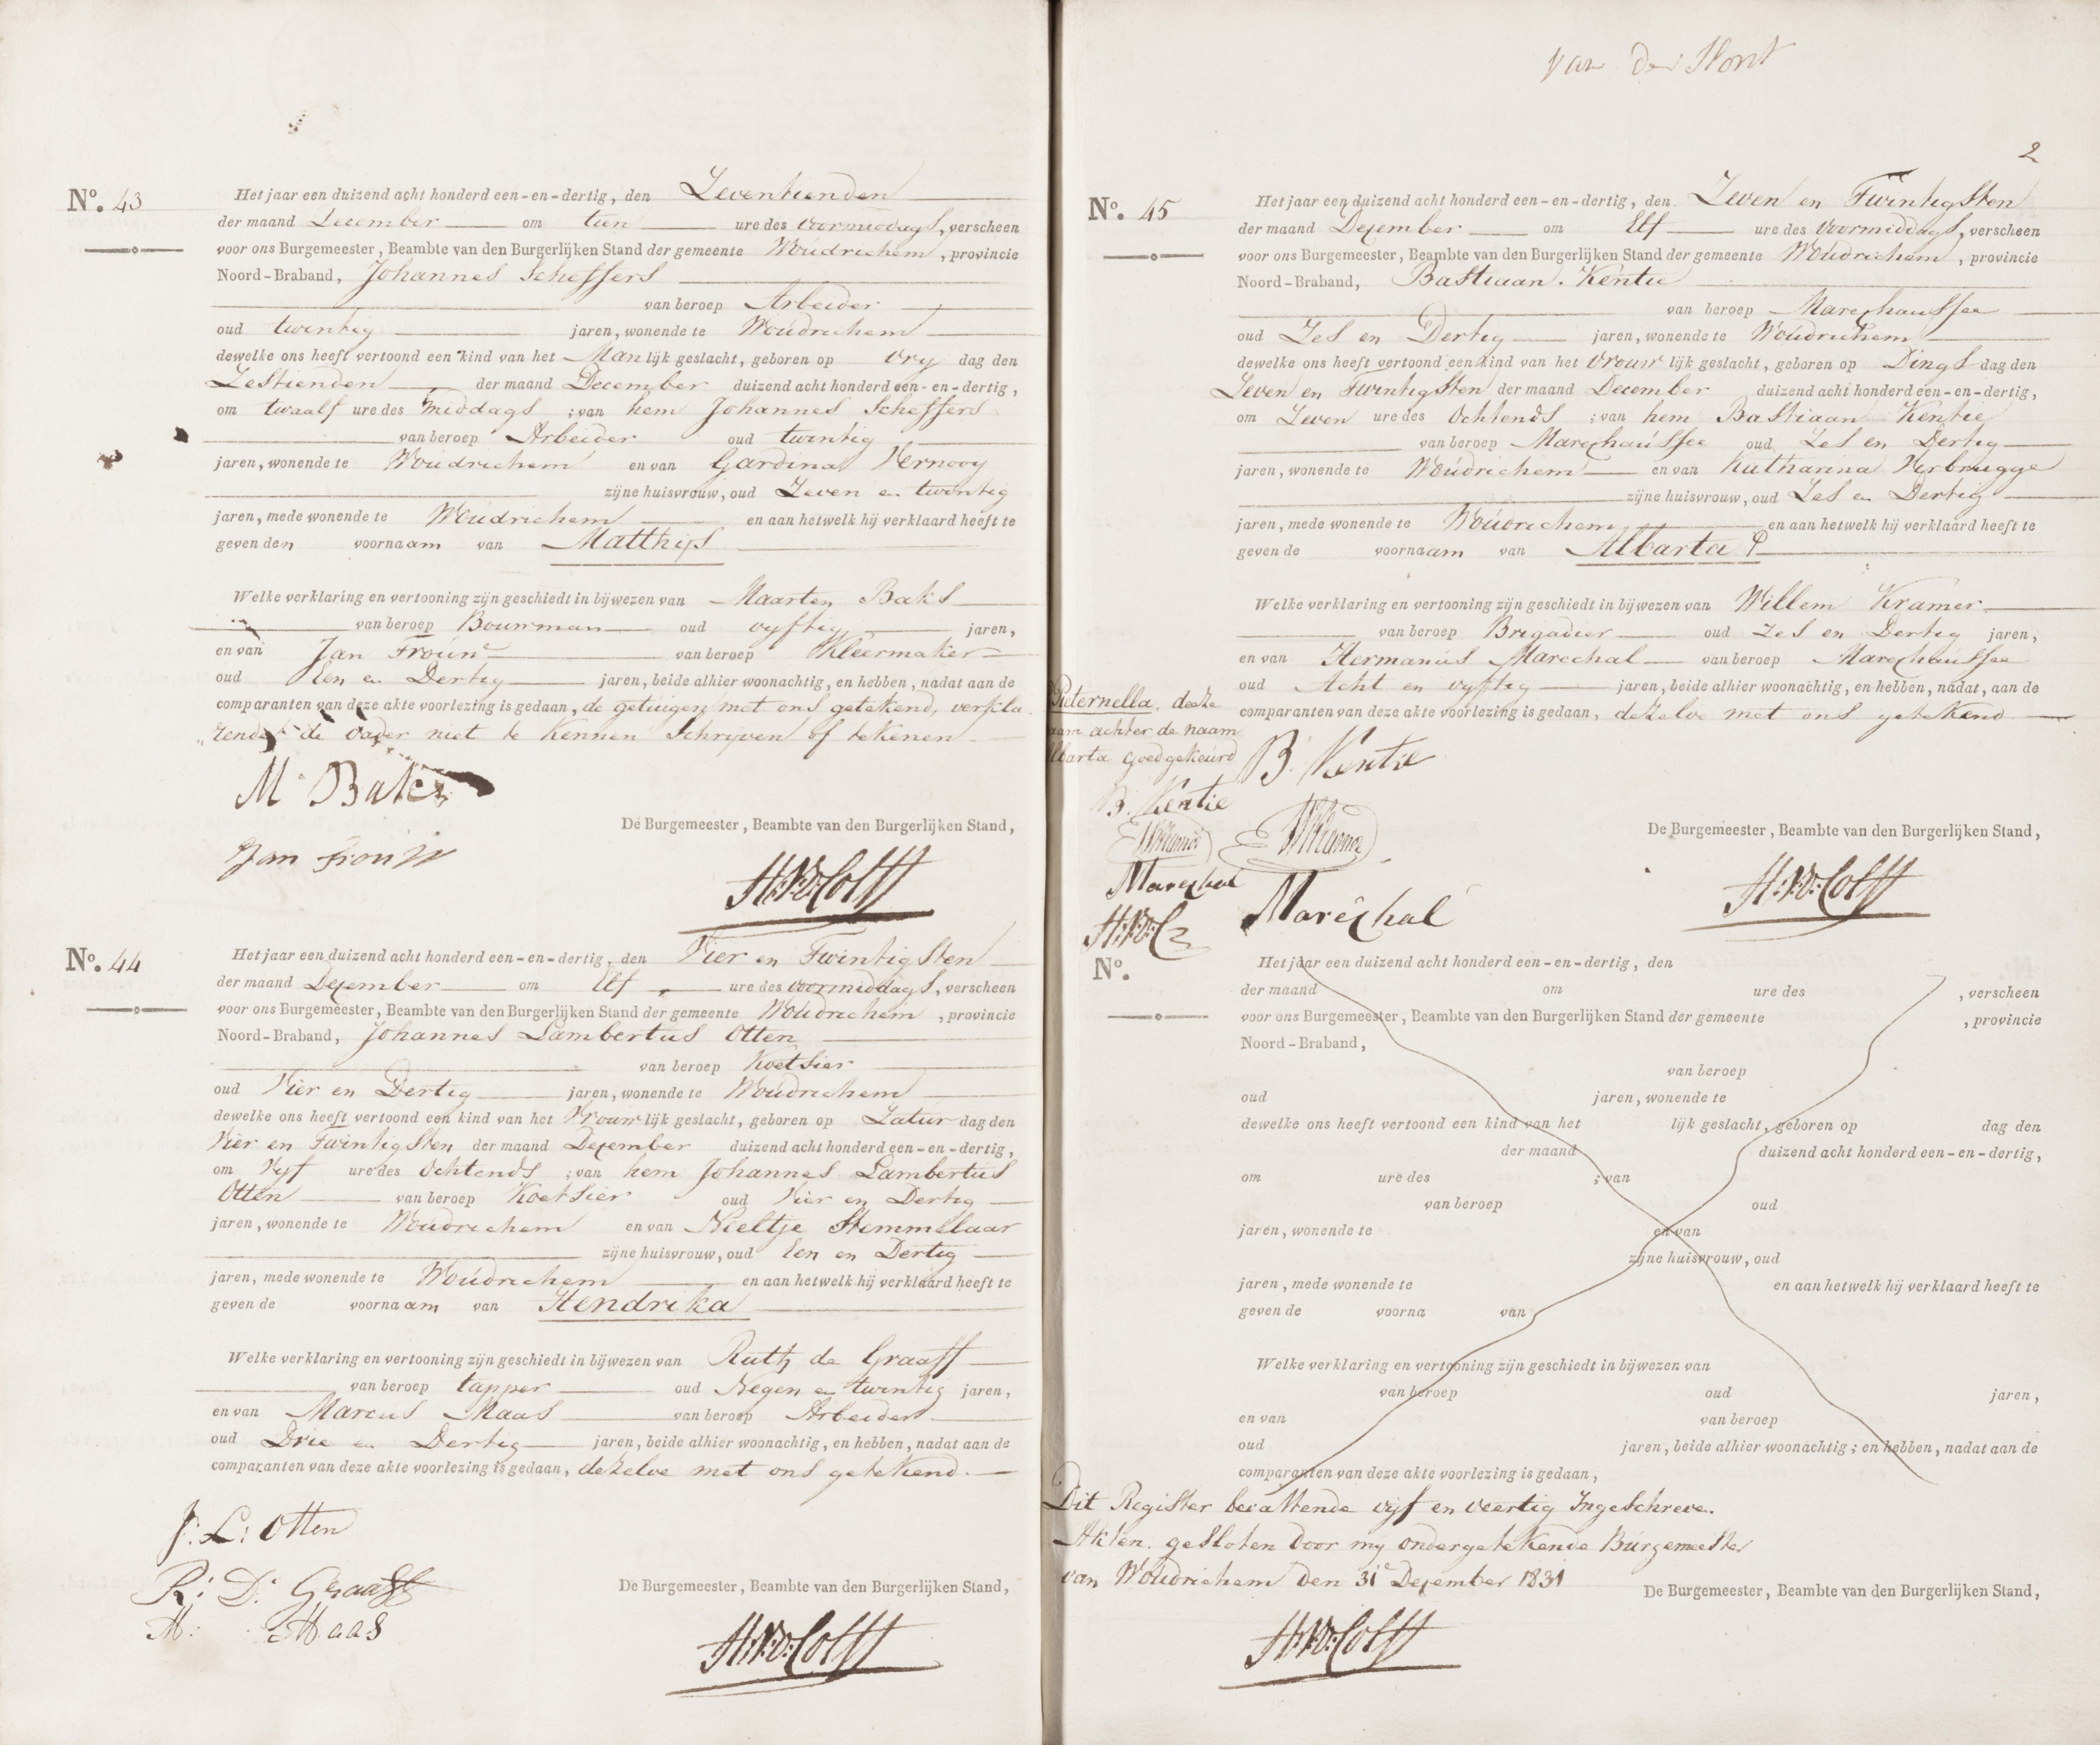 No. 43
Het jaar een duizend acht honderd een-en-dertig, den Zeventienden
der maand December om tien ure des voormiddags, verscheen
voor ons Burgemeester, Beambte van den Burgerlijken Stand der gemeente Woudrichem, provincie
Noord-Braband, Johannes Scheffers
van beroep Arbeider
oud twintig jaren, wonende te Woudrichem
dewelke ons heeft vertoond een kind van het Manlijk geslacht, geboren op Vry dag den
Zestienden der maand December duizend acht honderd een-en-dertig,
om twaalf ure des middags ; van hem Johannes Scheffers
van beroep Arbeider oud twintig
jaren, wonende te Woudrichem en van Gardina Vernooy
zijne huisvrouw, oud Zeven en twintig
jaren, mede wonende te Woudrichem en aan hetwelk hij verklaard heeft te
geven den voornaam van Matthijs
Welke verklaring en vertooning zijn geschiedt in bijwezen van Maarten Baks
van beroep Bouwman oud vyftig jaren,
en van Jan Froun van beroep Kleermaker
oud Een en Dertig jaren, beide alhier woonachtig, en hebben, nadat aan de
comparanten van deze akte voorlezing is gedaan, de getuigen met ons getekend, verkla
„rende de vader niet te kennen Schryven of tekenen
M Baks
Jan Froun
De Burgemeester, Beambte van den Burgerlijken Stand,
No. 44
Het jaar een duizend acht honderd een-en-dertig, den Vier en Twintigsten
der maand Dezember om Elf ure des voormiddags, verscheen
voor ons Burgemeester, Beambte van den Burgerlijken Stand der gemeente Woudrichem, provincie
Noord-Braband, Johannes Lambertus Otten
van beroep Koetsier
oud Vier en Dertig jaren, wonende te Woudrichem
dewelke ons heeft vertoond een kind van het Vrouwlijk geslacht, geboren op Zatur dag den
Vier en Twintigsten der maand Dezember duizend acht honderd een-en-dertig,
om Vyf ure des Ochtends ; van hem Johannes Lambertus
Otten van beroep Koetsier oud Vier en Dertig
jaren, wonende te Woudrichem en van Neeltje Stemmelaar
zijne huisvrouw, oud Een en Dertig
jaren, mede wonende te Woudrichem en aan hetwelk hij verklaard heeft te
geven de voornaam van Hendrika
Welke verklaring en vertooning zijn geschiedt in bijwezen van Ruth de Graaff
van beroep tapper oud Negen en twintig jaren,
en van Marcus Maas van beroep Arbeider
oud Drie en Dertig jaren, beide alhier woonachtig, en hebben, nadat aan de
comparanten van deze akte voorlezing is gedaan, dezelve met ons getekend.
J: L: Otten
R: D: Graaff
M: Maas
De Burgemeester, Beambte van den Burgerlijken Stand,
van der
2
No. 45
Het jaar een duizend acht honderd een-en-dertig, den Zeven en Twintigsten
der maand Dezember om Elf ure des voormiddags, verscheen
voor ons Burgemeester, Beambte van den Burgerlijken Stand der gemeente Woudrichem, provincie
Noord-Braband, Bastiaan Kentie
van beroep Marechaussee
oud Zes en Dertig jaren, wonende te Woudrichem
dewelke ons heeft vertoond een kind van het Vrouwlijk geslacht, geboren op Dings dag den
Zeven en Twintigsten der maand December duizend acht honderd een-en-dertig,
om Zeven ure des Ochtends ; van hem Bastiaan Kentie
van beroep Marechaussee oud Zes en Dertig
jaren, wonende te Woudrichem en van Katharina Verbrugge
zijne huisvrouw, oud Zes en Dertig
jaren, mede wonende te Woudrichem en aan hetwelk hij verklaard heeft te
geven de voornaam van Albarta P
Welke verklaring en vertooning zijn geschiedt in bijwezen van Willem Kramer
van beroep Brigadier oud Zes en Dertig jaren,
en van Hermanus Marechal van beroep Marechaussee
oud Acht en vyftig jaren, beide alhier woonachtig, en hebben, nadat, aan de
comparanten van deze akte voorlezing is gedaan, dezelve met ons getekend
Pieternella, deeze
naam achter de naam
Albarta goedgekeurd
B. Kentie
Marechal
B. Kentie
Marechal
De Burgemeester, Beambte van den Burgerlijken Stand,
No.
Het jaar een duizend acht honderd een-en-dertig, den
der maand om ure des , verscheen
voor ons Burgemeester, Beambte van den Burgerlijken Stand der gemeente , provincie
Noord-Braband,
van beroep
oud jaren, wonende te
dewelke ons heeft vertoond een kind van het lijk geslacht, geboren op dag den
der maand duizend acht honderd een-en-dertig,
om ure des ; van
van beroep oud
jaren, wonende te en van
zijne huisvrouw, oud
jaren, mede wonende te en aan hetwelk hij verklaard heeft te
geven de voorna van
Welke verklaring en vertooning zijn geschiedt in bijwezen van
van beroep oud jaren,
en van van beroep
oud jaren, beide alhier woonachtig; en hebben, nadat aan de
comparanten van deze akte voorlezing is gedaan,
Dit Register bevattende vyf en veertig Ingeschreve
Akten, gesloten door my ondergetekende Burgemeester
van Woudrichem Den 31e Dezember 1831
De Burgemeester, Beambte van den Burgerlijken Stand,